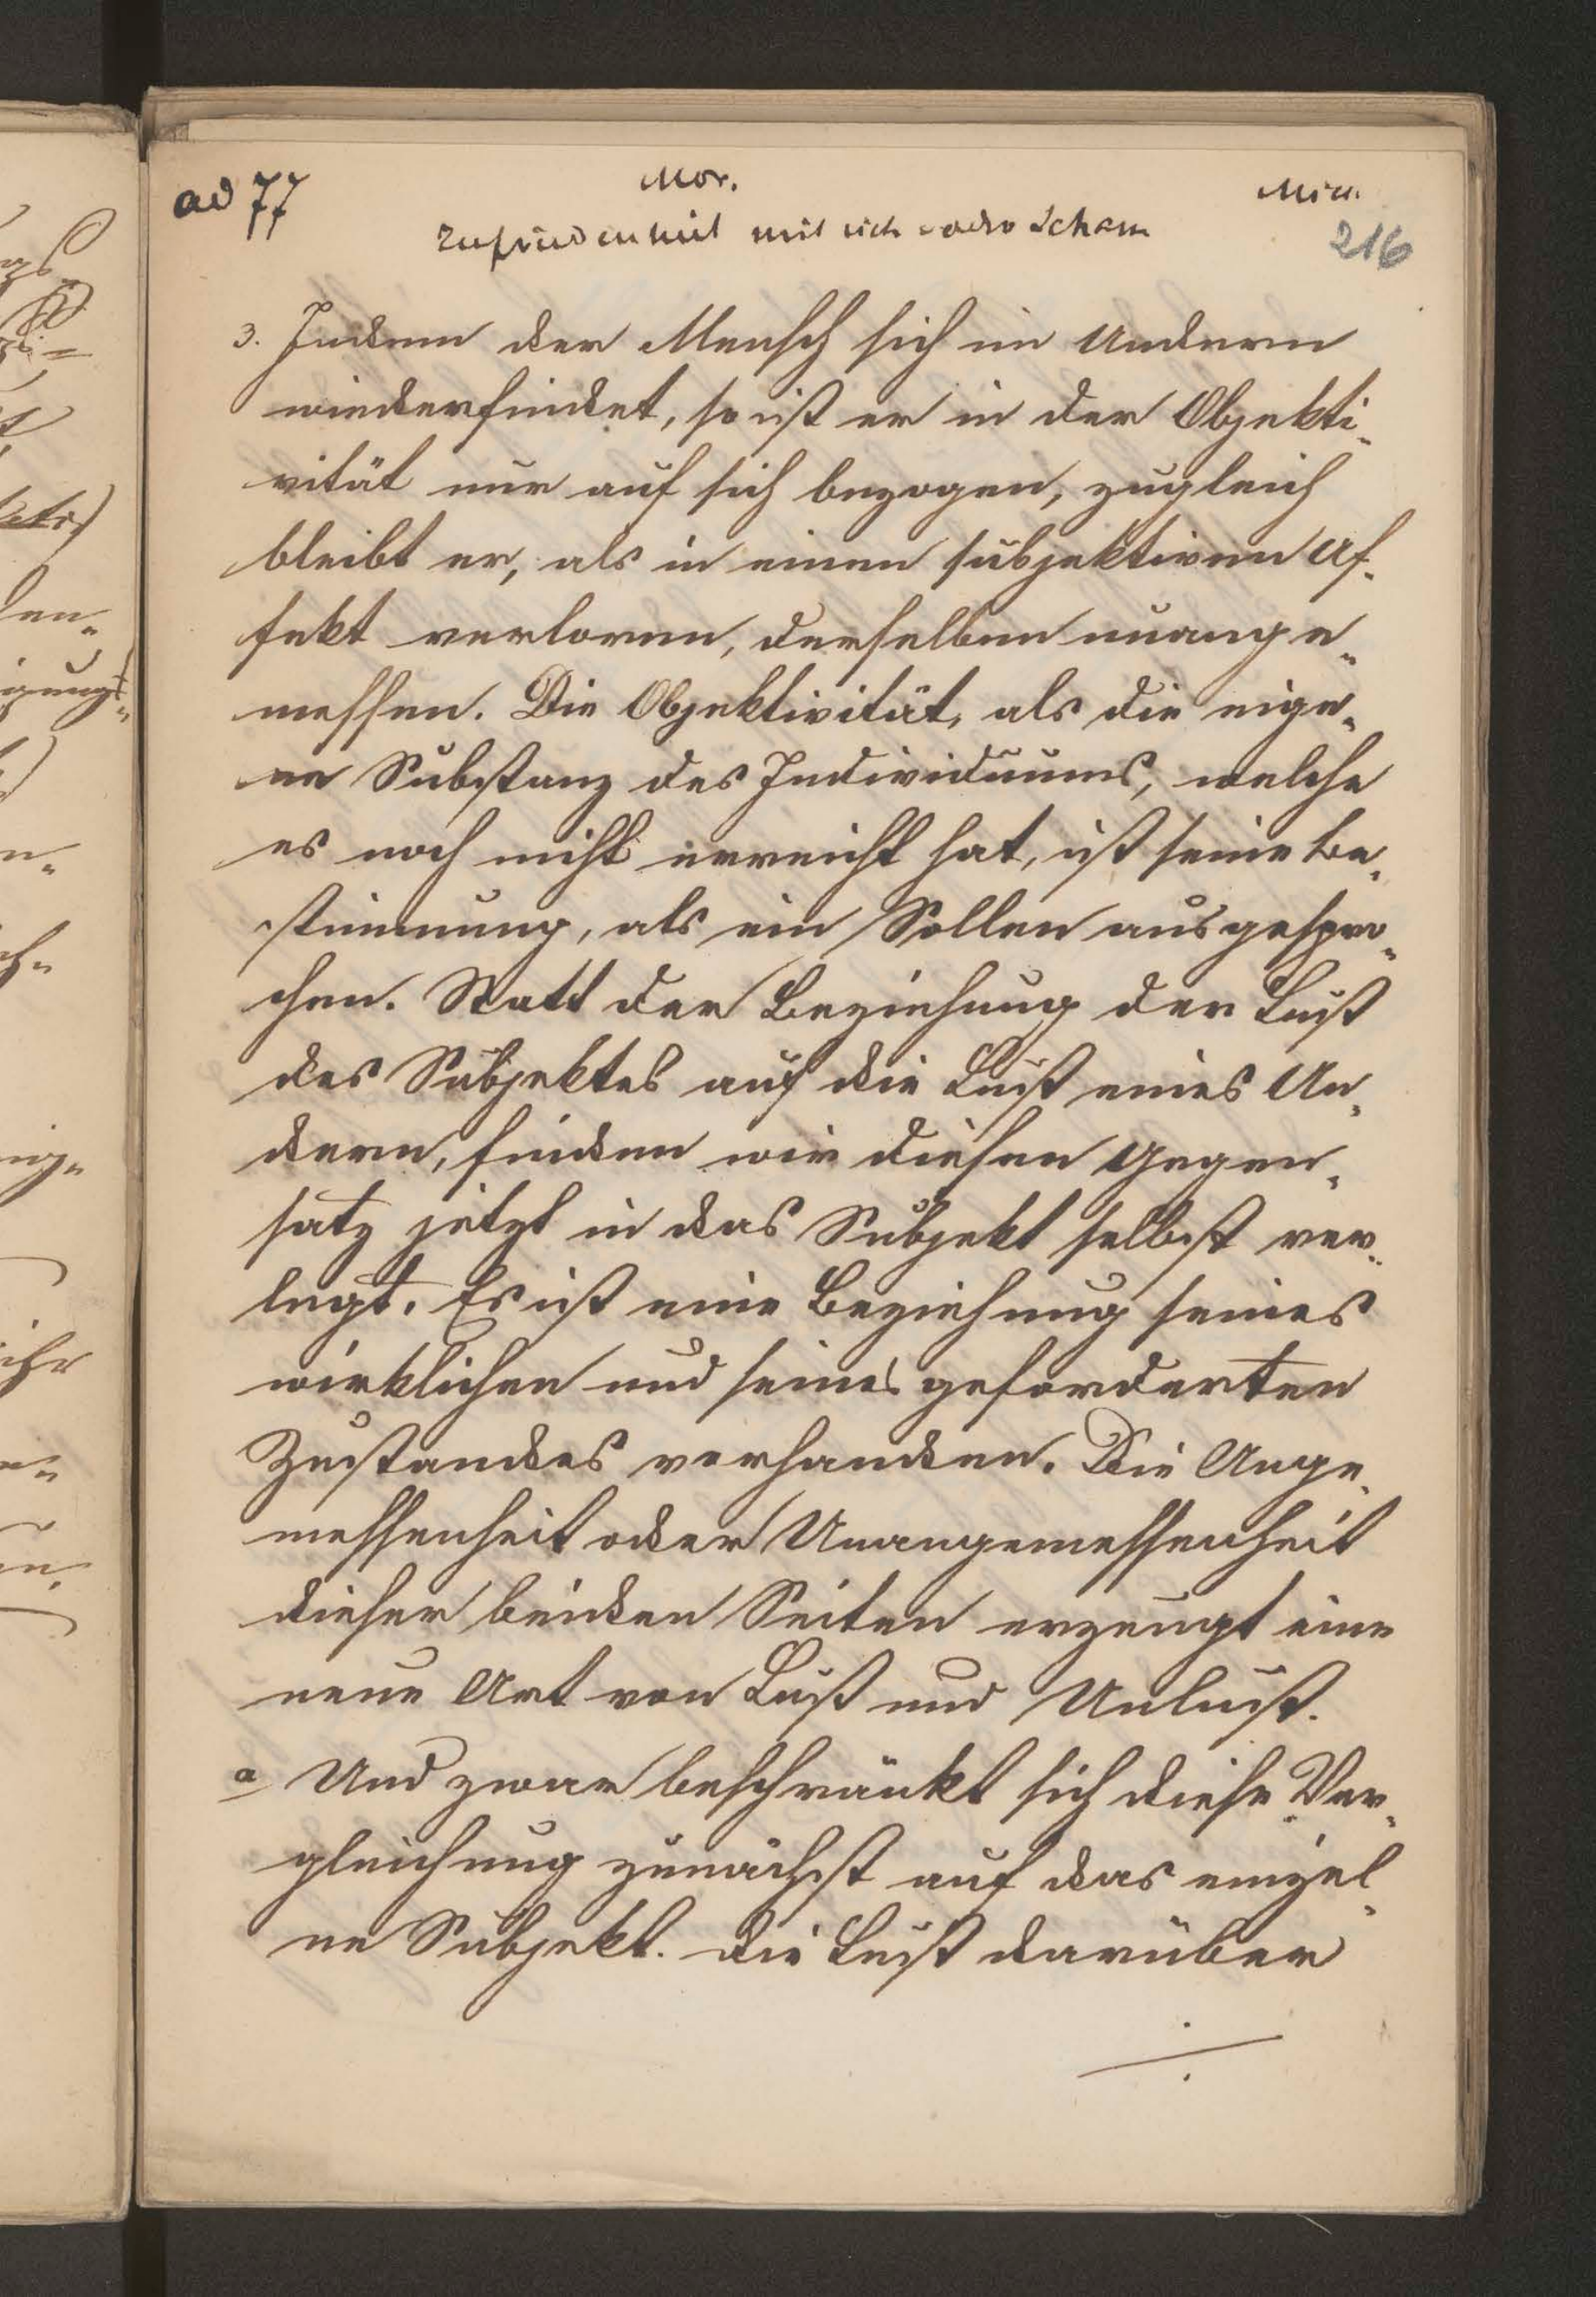 ad 77
Mor.
Mich.
Zufriedenheit mit sich oder Scham
216
3. Indem der Mensch sich im Andern
wiederfindet, so ist er in der Objekti-
vität nur auf sich bezogen, zugleich
bleibt er, als in einen subjektiven Af-
fekt verloren, derselben unange-
messen. Die Objektivität, als die eige-
ne Substanz des Individuums, welche
es noch nicht erreicht hat, ist seine Be-
stimmung, als ein Sollen ausgespro-
chen. Statt der Beziehung der Lust
des Subjektes auf die Lust eines An-
dern, finden wir diesen Gegen-
satz jetzt in das Subjekt selbst ver-
legt. Es ist eine Beziehung seines
wirklichen und seines geforderten
Zustandes vorhanden. Die Ange-
messenheit oder Unangemessenheit
dieser beiden Seiten erzeugt eine
neue Art von Lust und Unlust.
a Und zwar beschränkt sich diese Ver-
gleichung zunächst auf das einzel-
ne Subjekt. Die Lust darüber